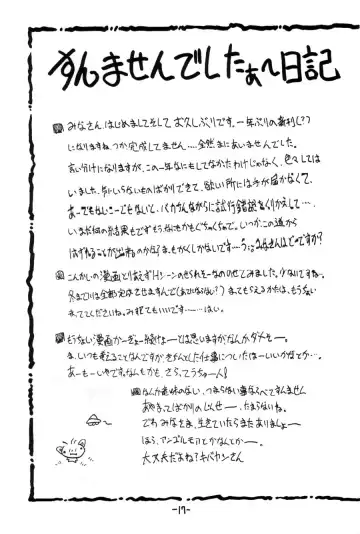 すんませんでしたぁ〜日記
みなさん はじめまして そして お久しぶりです。一年ぶりの新刊(?)
になりますね。つか完成してません…。全然まにあいませんでした。
言い分けになりますが、この一年なにもしてなかったわけじゃなく、色々しては
いました。ただいらないものばかりできて、欲しい所には手が届かなくて、
あーでもないこーでもないと、バカさんながらに試行錯誤をくりかえして…、
いまだ何の結果もでず もうなにもかもぐちゃぐちゃで。いつかこの道から
はずれることが出来るのかな? まもかくしかないです…
こんかいの漫画とりあえずHシーンの
までには全部完成させますんで
まっててくださいね。みすててもいいです……はい。
もうない漫画かーぎょー続けよーとは思いますがなんかダメそー。
ま、いつも考えることなんですが、きちんとした仕事についたほーがいいかなとか…。
あーもーいやですなんもかも、さらてうちゅー人!
なんか意味のない、つまらない事ならべてすんません
あやまってばかりの人せー、たまらないね。
でわ みなさま、生きていたらまたありましょー
ほら、アンゴルモアとかなんとかー。
大丈夫だよね?キバヤシさん
-17-